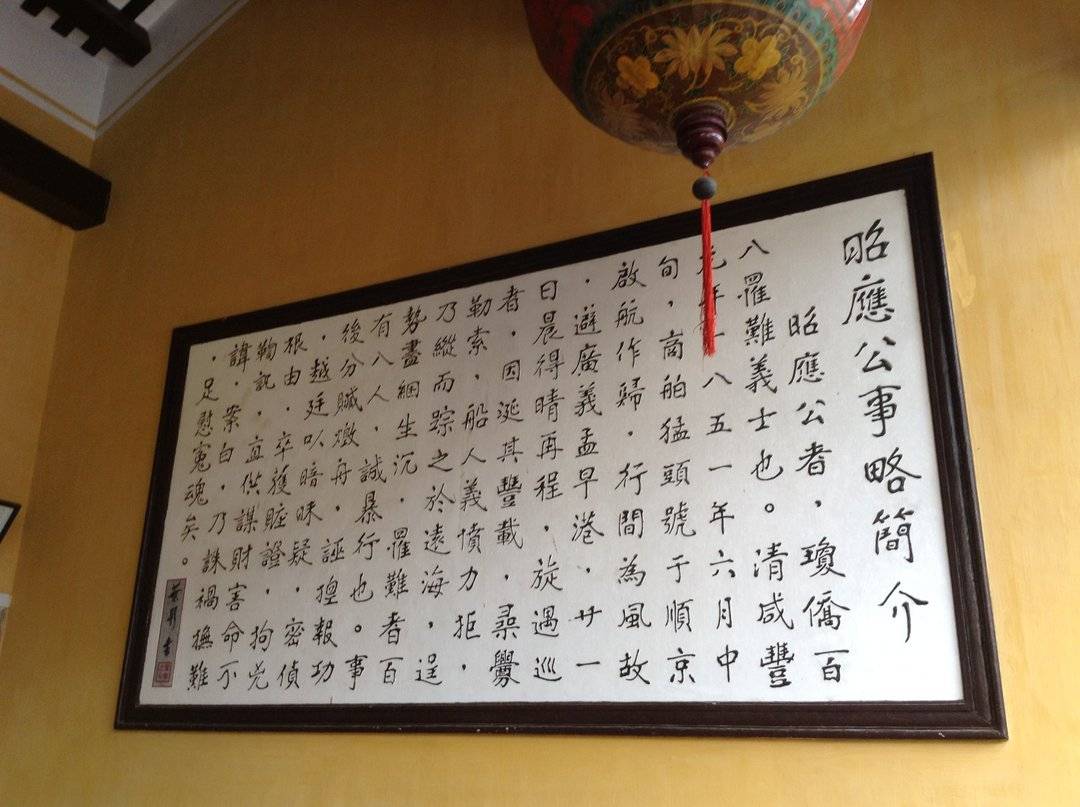 昭應公事略簡介
昭應公者，瓊僑百
八罹難義士也。清咸豐
元年一八五一年六月中
旬，商舶猛頭號于順京
啟航作歸．行間為風故
．避廣義孟早港，廿一
日晨得晴再程，旋遇巡
者．因涎其豐載，尋釁
勒索，船人義憤力拒，
乃縱而踪之於遠海，逞
勢盡綑生沉．罹難者百
有八人．誠暴行也。事
後分贓燬舟，誣揑報功
，越廷以暗昧疑，密偵
根由．卒獲賍證，拘兇
鞠訊，直供謀財害命不
諱．案白，乃誅禍撫難
，足慰寃魂矣。